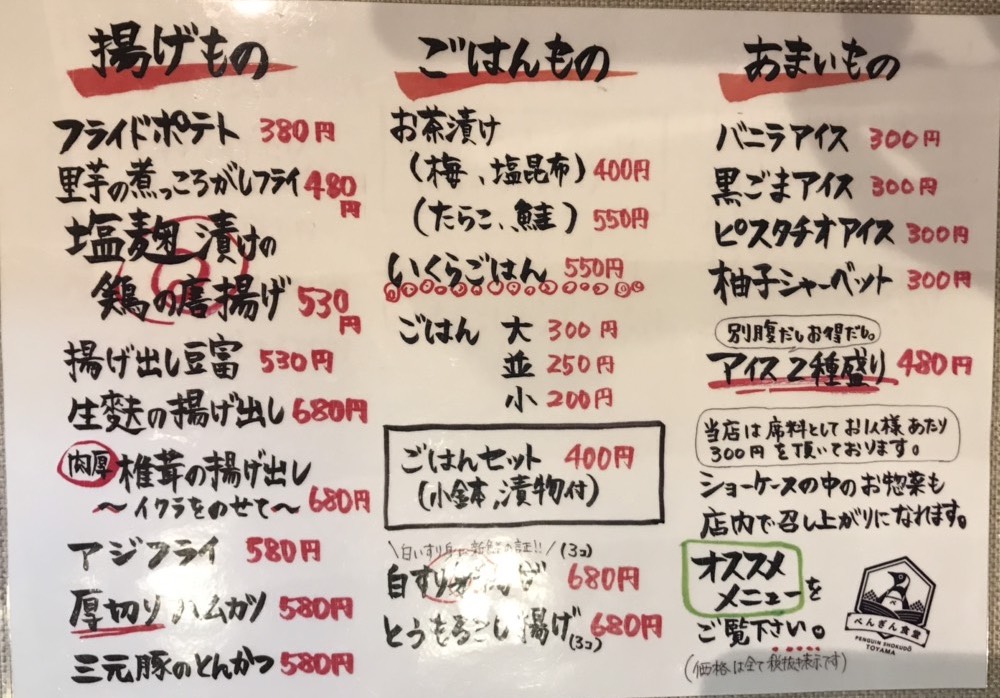 揚げもの
フライドポテト 380円
里芋の煮っころがしフライ 480円
塩麹漬けの
鶏の唐揚げ 530円
揚げ出し豆富 530円
生麩の揚げ出し 680円
肉厚 椎茸の揚げ出し
〜イクラをのせて〜 680円
アジフライ 580円
厚切りハムカツ 580円
三元豚のとんかつ 580円
ごはんもの
お茶漬け
(梅、塩昆布) 400円
(たらこ、鮭) 550円
いくらごはん 550円
ごはん 大 300円
並 250円
小 200円
ごはんセット 400円
(小鉢、漬物付)
\白いすり身は新鮮の証!!/ (3コ)
白すり身 680円
とうもろこし揚げ(3コ) 680円
あまいもの
バニラアイス 300円
黒ごまアイス 300円
ピスタチオアイス 300円
柚子シャーベット 300円
別腹だしお得だし。
アイス2種盛り 480円
当店は席料としてお1人様あたり
300円を頂いております。
ショーケースの中のお惣菜も
店内で召し上がりになれます。
オススメ
メニューを
ご覧下さい。
(価格は全て税抜き表示です)
ぺ
ぺんぎん食堂
PENGUIN SHOKUDO
TOYAMA